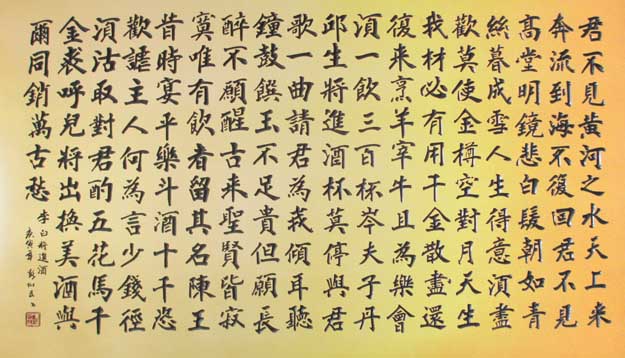 君不見黃河之水天上來
奔流到海不復回君不見
高堂明鏡悲白髮朝如青
絲暮成雪人生得意湏盡
歡莫使金樽空對月天生
我材必有用千金散盡還
復來烹羊宰牛且為樂會
湏一飲三百杯岑夫子丹
邱生將進酒杯莫停與君
歌一曲請君為我傾耳聽
鐘鼓饌玉不足貴但願長
醉不願醒古來聖賢皆寂
寞唯有飲者留其名陳王
昔時宴平樂斗酒十千恣
歡謔主人何為言少錢徑
湏沽取對君酌五花馬千
金裘呼兒將出換美酒與
爾同銷萬古愁
李白將進酒
庚寅年